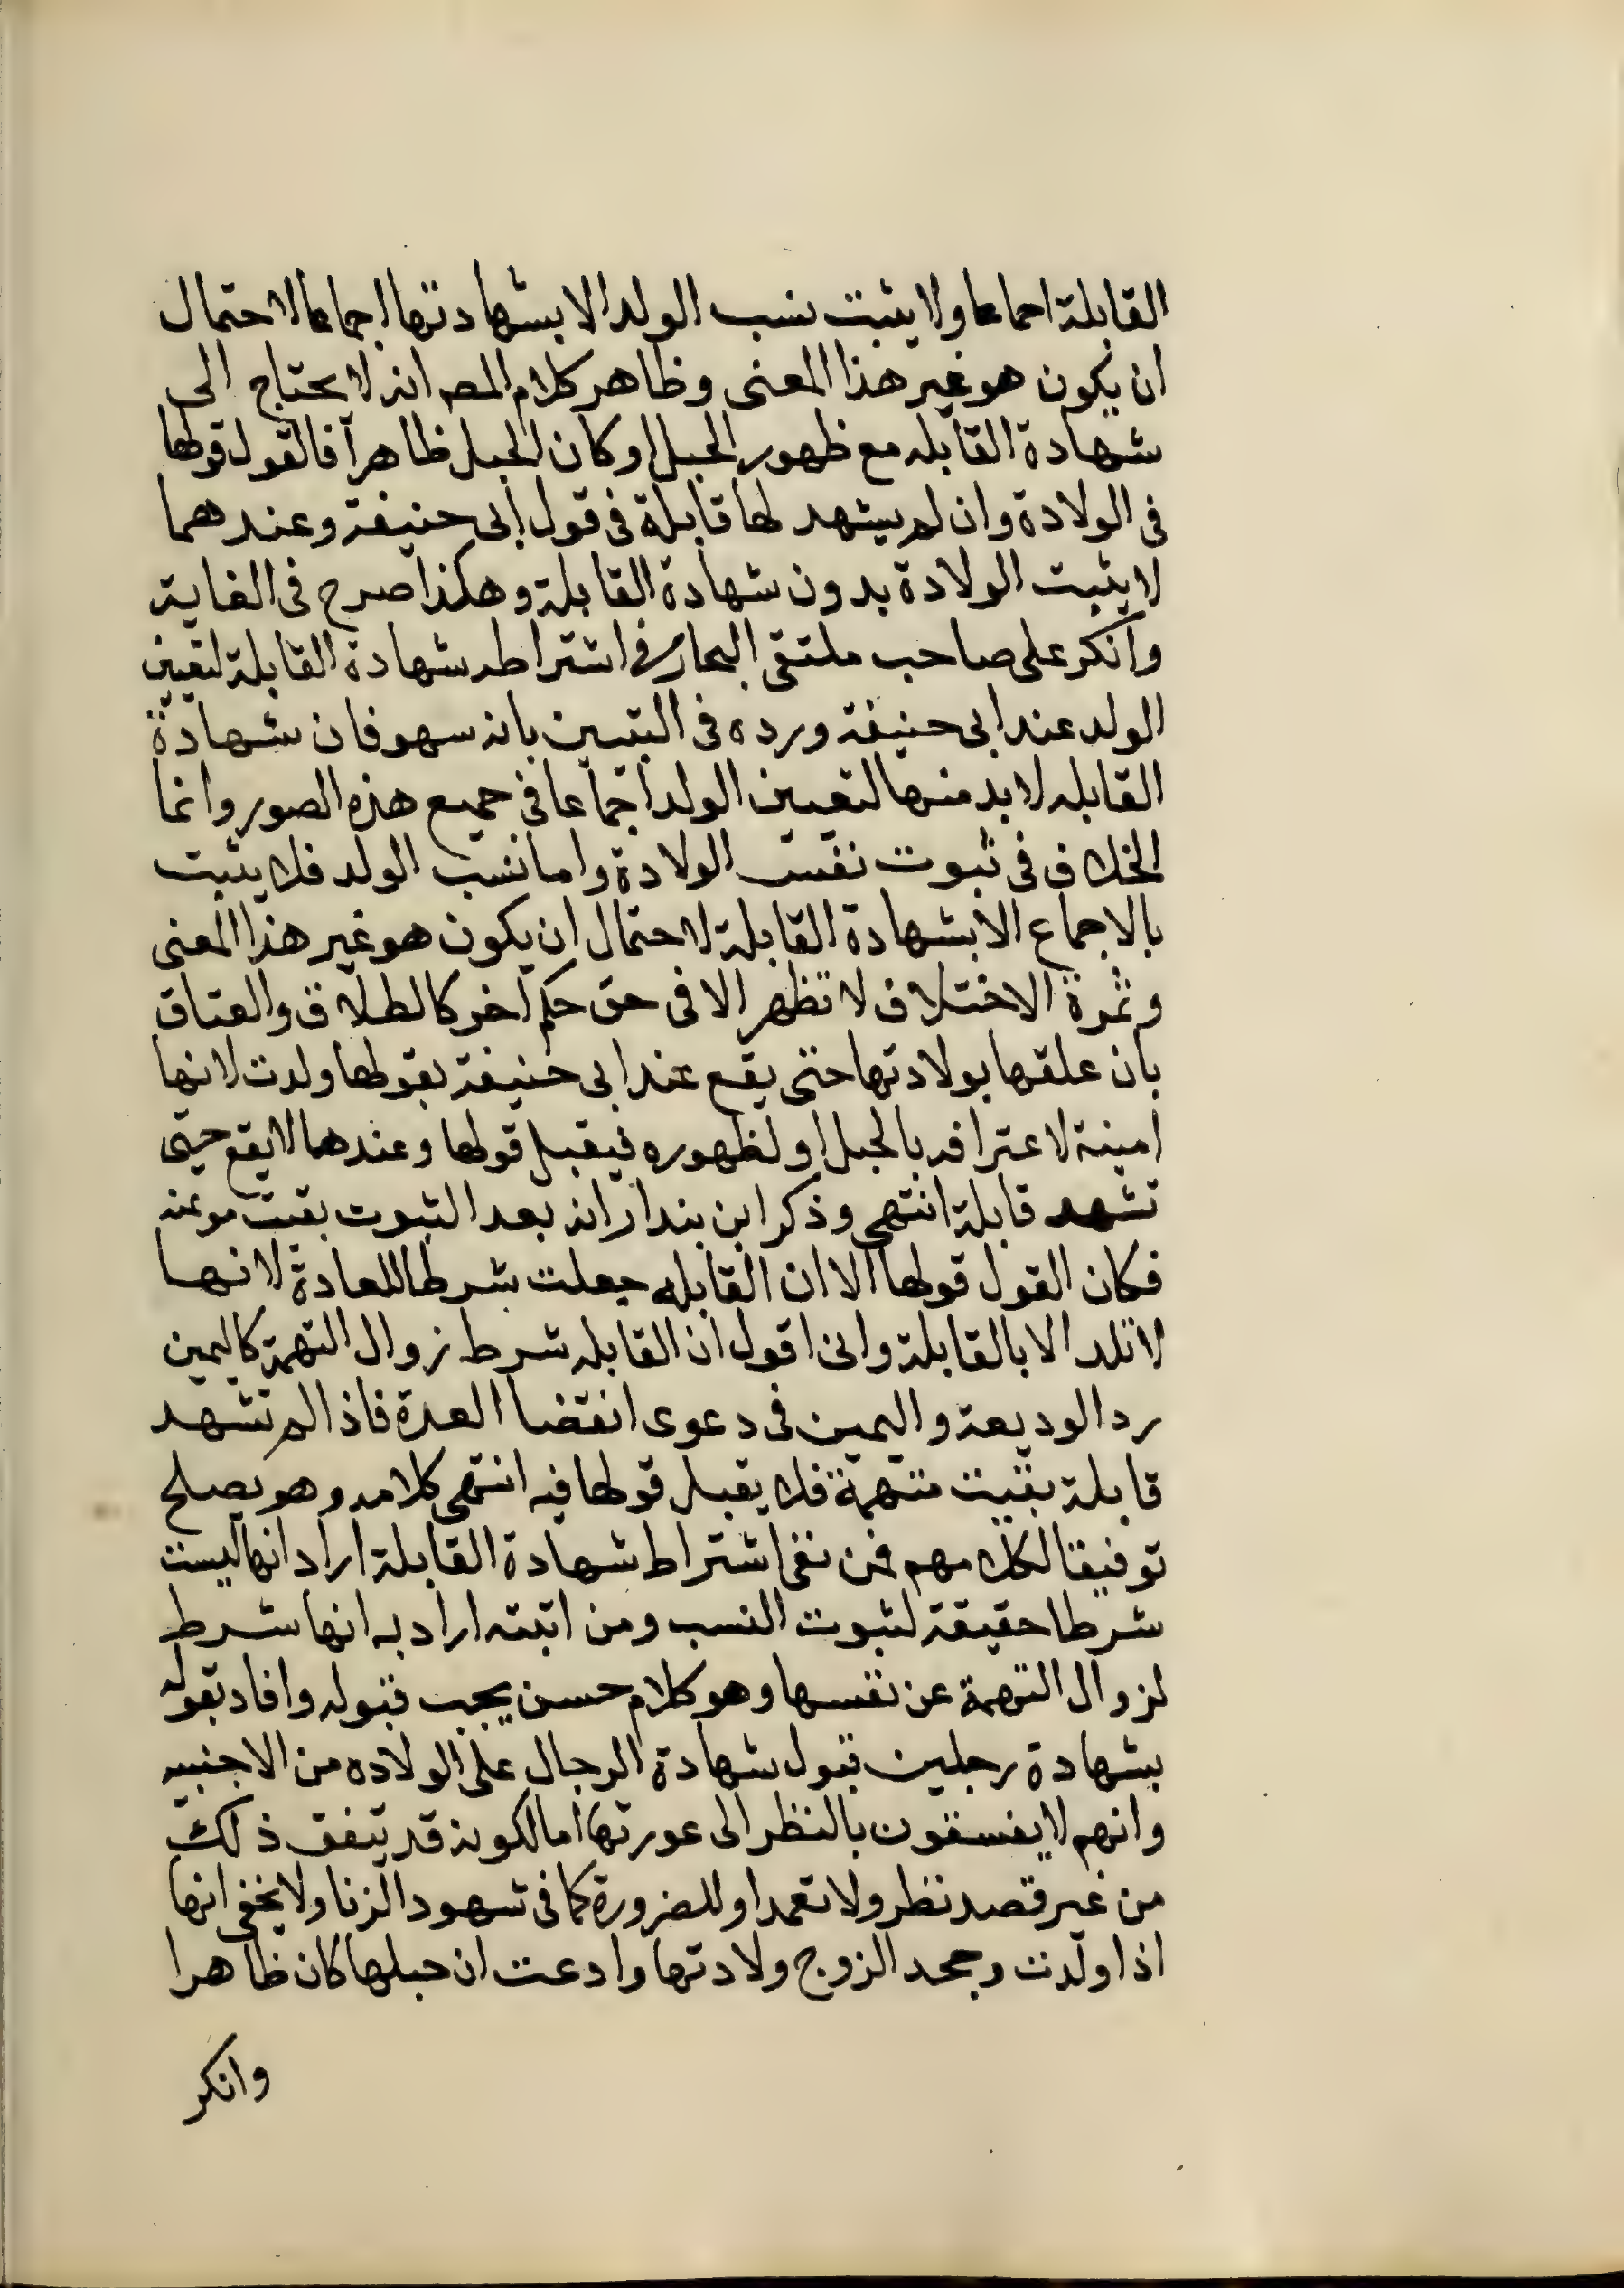 القابلة اجماعا ولا يثبت نسب الولد الا بشهادتها اجماعا لاحتمال
ان يكون هو غير هذا المعنى وظاهر كلام المص انه لا يحتاج الى
شهادة القابله مع ظهور الحبل او كان الحبل ظاهرا فالقول قولها
فى الولادة وان لم يشهد لها قابلة فى قول ابى حنيفة وعندهما
لا يثبت الولادة بدون شهادة القابلة وهكذا صرح فى الغاية
وانكر على صاحب ملتقى البحار فى اشتراطه شهادة القابلة لتعيين
الولد عند ابى حنيفة ورده فى التبيين بانه سهو فان شهادة
القابله لا بد منها لتعيين الولد اجماعا فى جميع هذه الصور وانما
الخلاف فى ثبوت نفس الولادة واما نسب الولد فلا يثبت
بالاجماع الا بشهادة القابلة لاحتمال ان يكون هو غير هذا المعنى
وثمرة الاختلاف لا تظهر الا فى حق حكم آخر كالطلاق والعتاق
بان علقها بولادتها حتى يقع عند ابى حنيفة بقولها ولدت لانها
امينة لاعترافه بالحبل او لظهوره فيقبل قولها وعندهما لا يقع حتى
تشهد قابلة انتهى وذكر ابن بندار انه بعد الثبوت بقيت موتمنه
فكان القول قولها الا ان القابله جعلت شرطا للعادة لانها
لا تلد الا بالقابلة وانى اقول ان القابله شرط زوال التهمة كاليمين
رد الوديعة واليمين فى دعوى انقضا العدة فاذا لم تشهد
قابلة بقيت متهمة فلا يقبل قولها فيه انتهى كلامه وهو يصلح
توفيقا لكلامهم فمن نفى اشتراط شهادة القابلة اراد انها ليست
شرطا حقيقة لثبوت النسب ومن اثبته اراد به انها شرط
لزوال التهمة عن نفسها وهو كلام حسن يجب قبوله وافاد بقوله
بشهادة رجلين قبول شهادة الرجال على الولاده من الاجنبيه
وانهم لا يفسقون بالنظر الى عورتها اما لكونه قد يتفق ذلك
من غير قصد نظر ولا تعمد او للضرورة كما فى شهود الزنا ولا يخفى انها
اذا ولدت وجحد الزوج ولادتها وادعت ان حبلها كان ظاهرا
وانكر